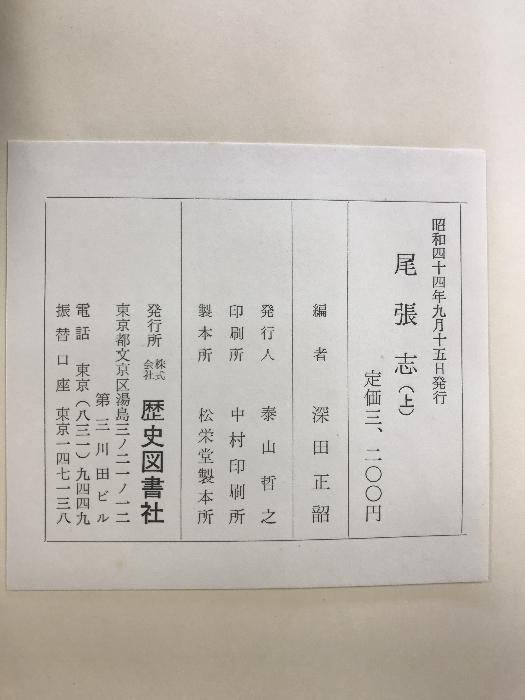 昭和四十四年九月十五日発行
尾張志（上）
定価三、二〇〇円
編者 深田正韶
発行人 泰山哲之
印刷所 中村印刷所
製本所 松栄堂製本所
発行所 株式会社 歴史図書社
東京都文京区湯島三ノ二一ノ一二
第三川田ビル
電話 東京（八三一）九四四九
振替口座 東京一四七一三八